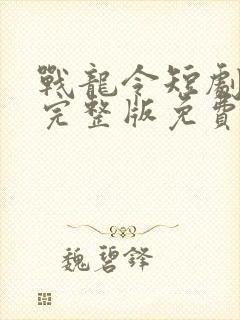 戰龍令短劇
完整版免費
魏碧鋒